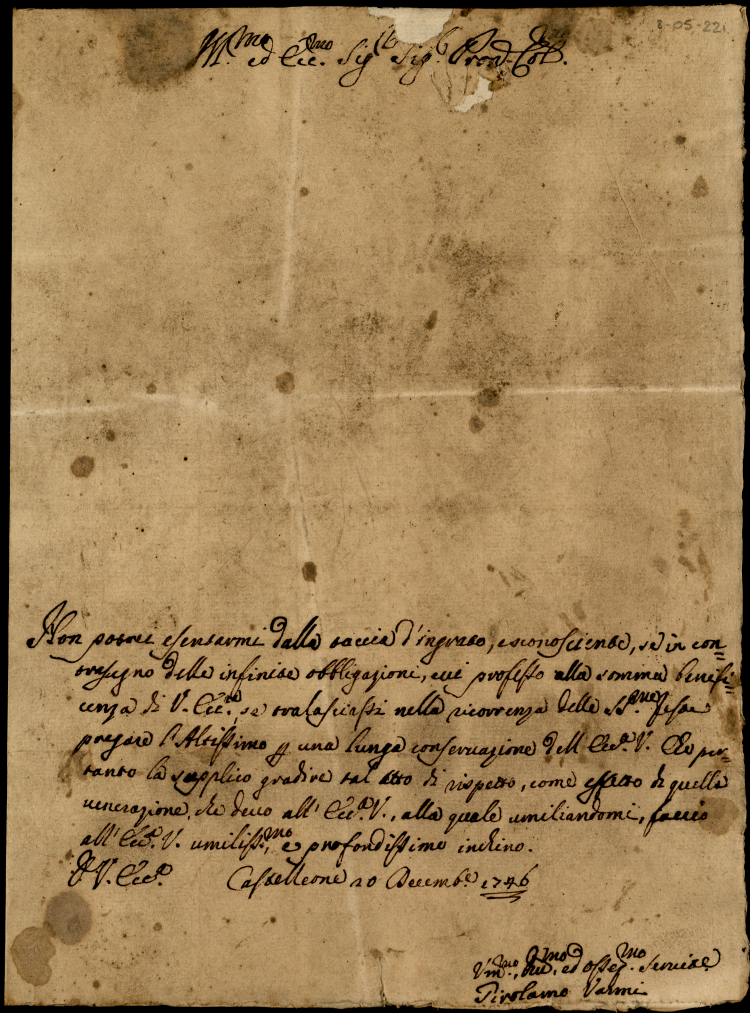 8-05-221
Ill.mo ed Ecc.mo Sig.r Sig.r Pron. Col.
Non potrei esentarmi dalla taccia d'ingrato, e sconoscente, se in con=
trasegno delle infinite obbligazioni, cui professo alla somma benefi=
cenza di V. Ecc.a, se tralasciassi nella ricorrenza delle SS.me Feste
pregare l'Altissimo p una lunga conservazione dell'Ecc.a V. Che per=
tanto la supplico gradire tal atto di rispetto, come effetto di quella
venerazione, che devo all'Ecc.a V., alla quale umiliandomi, faccio
all'Ecc.a V. umiliss.mo e profondissimo inchino.
D V. Ecc.a Castelleone 20 Decemb.e 1746
Um.mo, ed osseq.mo Servite
Girolamo Varmi